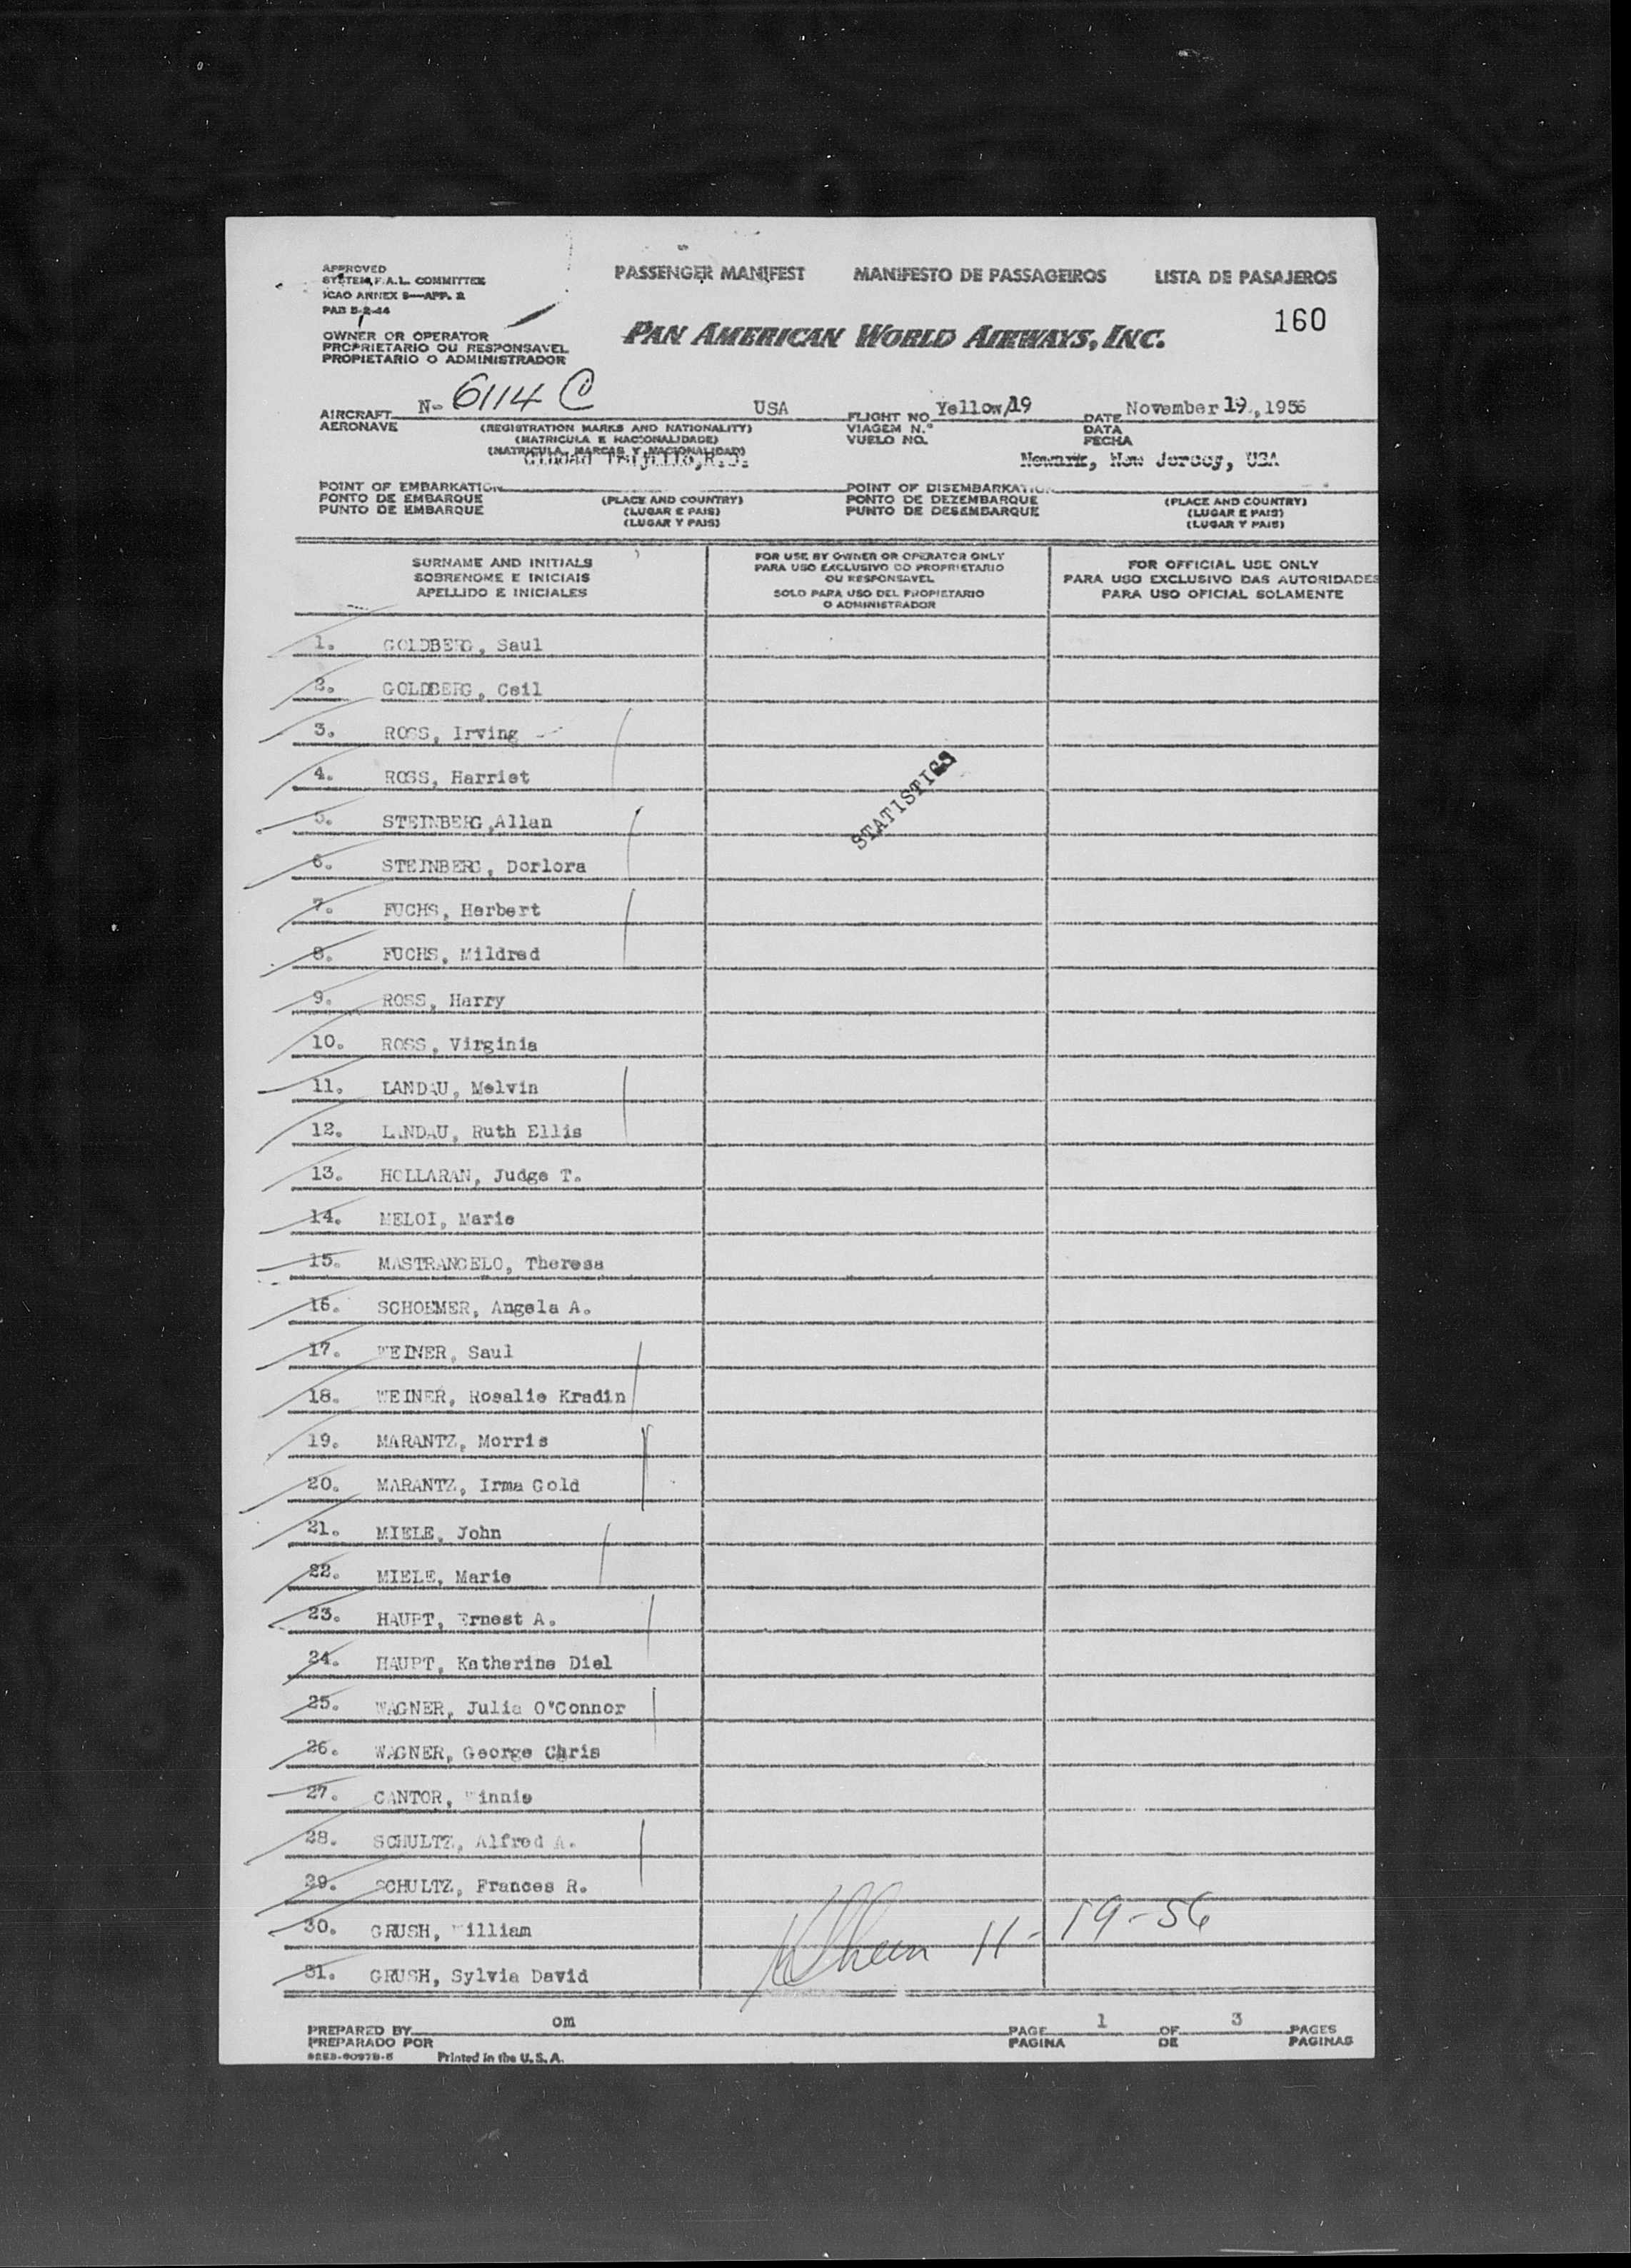 APPROVED
SYSTEM F.A.L. COMMITTEE
ICAO ANNEX 9—APP. 2
PAB 5-2-44
PASSENGER MANIFEST MANIFESTO DE PASSAGEIROS LISTA DE PASAJEROS
160
OWNER OR OPERATOR
PROPRIETARIO OU RESPONSAVEL
PROPIETARIO O ADMINISTRADOR
PAN AMERICAN WORLD AIRWAYS, INC.
AIRCRAFT N- 6114 C USA FLIGHT NO. Yellow/19 DATE November 19, 1956
AERONAVE (REGISTRATION MARKS AND NATIONALITY) VIAGEM N.º DATA
(MATRICULA E NACIONALIDADE) VUELO NO. FECHA
(MATRICULA, MARCAS Y NACIONALIDAD)
Ciudad Trujillo, R.D. Newark, New Jersey, USA
POINT OF EMBARKATION POINT OF DISEMBARKATION
PONTO DE EMBARQUE (PLACE AND COUNTRY) PONTO DE DEZEMBARQUE (PLACE AND COUNTRY)
PUNTO DE EMBARQUE (LUGAR E PAIS) PUNTO DE DESEMBARQUE (LUGAR E PAIS)
(LUGAR Y PAIS) (LUGAR Y PAIS)
SURNAME AND INITIALS
SOBRENOME E INICIAIS
APELLIDO E INICIALES
FOR USE BY OWNER OR OPERATOR ONLY
PARA USO EXCLUSIVO DO PROPRIETARIO
OU RESPONSAVEL
SOLO PARA USO DEL PROPIETARIO
O ADMINISTRADOR
FOR OFFICIAL USE ONLY
PARA USO EXCLUSIVO DAS AUTORIDADES
PARA USO OFICIAL SOLAMENTE
1. GOLDBERG, Saul
2. GOLDBERG, Ceil
3. ROSS, Irving
4. ROSS, Harriet
STATISTICS
5. STEINBERG,Allan
6. STEINBERG, Dorlora
7. FUCHS, Herbert
8. FUCHS, Mildred
9. ROSS, Harry
10. ROSS, Virginia
11. LANDAU, Melvin
12. LANDAU, Ruth Ellis
13. HOLLARAN, Judge T.
14. MELOI, Marie
15. MASTRANGELO, Theresa
16. SCHOEMER, Angela A.
17. WEINER, Saul
18. WEINER, Rosalie Kradin
19. MARANTZ, Morris
20. MARANTZ, Irma Gold
21. MIELE, John
22. MIELE, Marie
23. HAUPT, Ernest A.
24. HAUPT, Katherine Diel
25. WAGNER, Julia O'Connor
26. WAGNER, George Chris
27. CANTOR, innie
28. SCHULTZ, Alfred A.
29. SCHULTZ, Frances R.
30. GRUSH, William
11-19-56
31. GRUSH, Sylvia David
PREPARED BY om PAGE 1 OF 3 PAGES
PREPARADO POR PAGINA DE PAGINAS
Printed in the U.S.A.